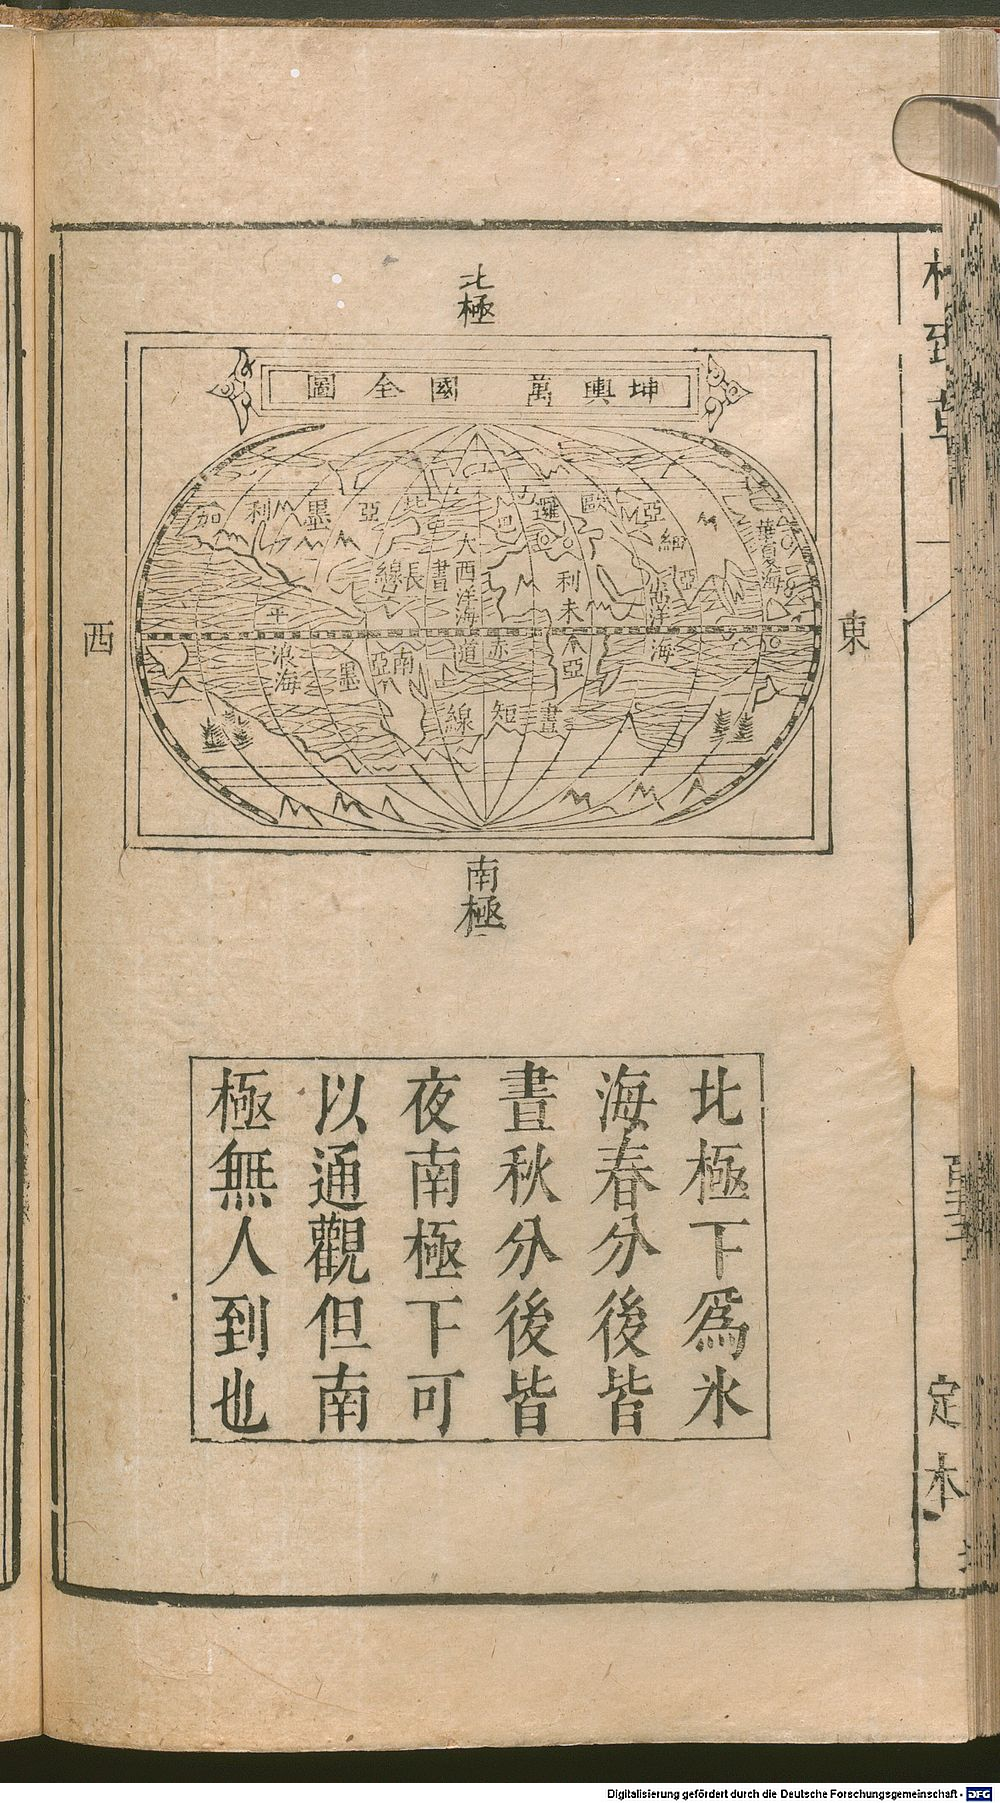 格致草
定本
北極
坤輿萬國全圖
東
西
南極
歐邏巴
利未亞
亞細亞
華夏海
大西洋海
北亞墨利加
晝長線
赤道
小西洋海
平浪海
南亞墨
晝短線
北極下爲氷
海春分後皆
晝秋分後皆
夜南極下可
以通觀但南
極無人到也
Digitalisierung gefördert durch die Deutsche Forschungsgemeinschaft - DFG